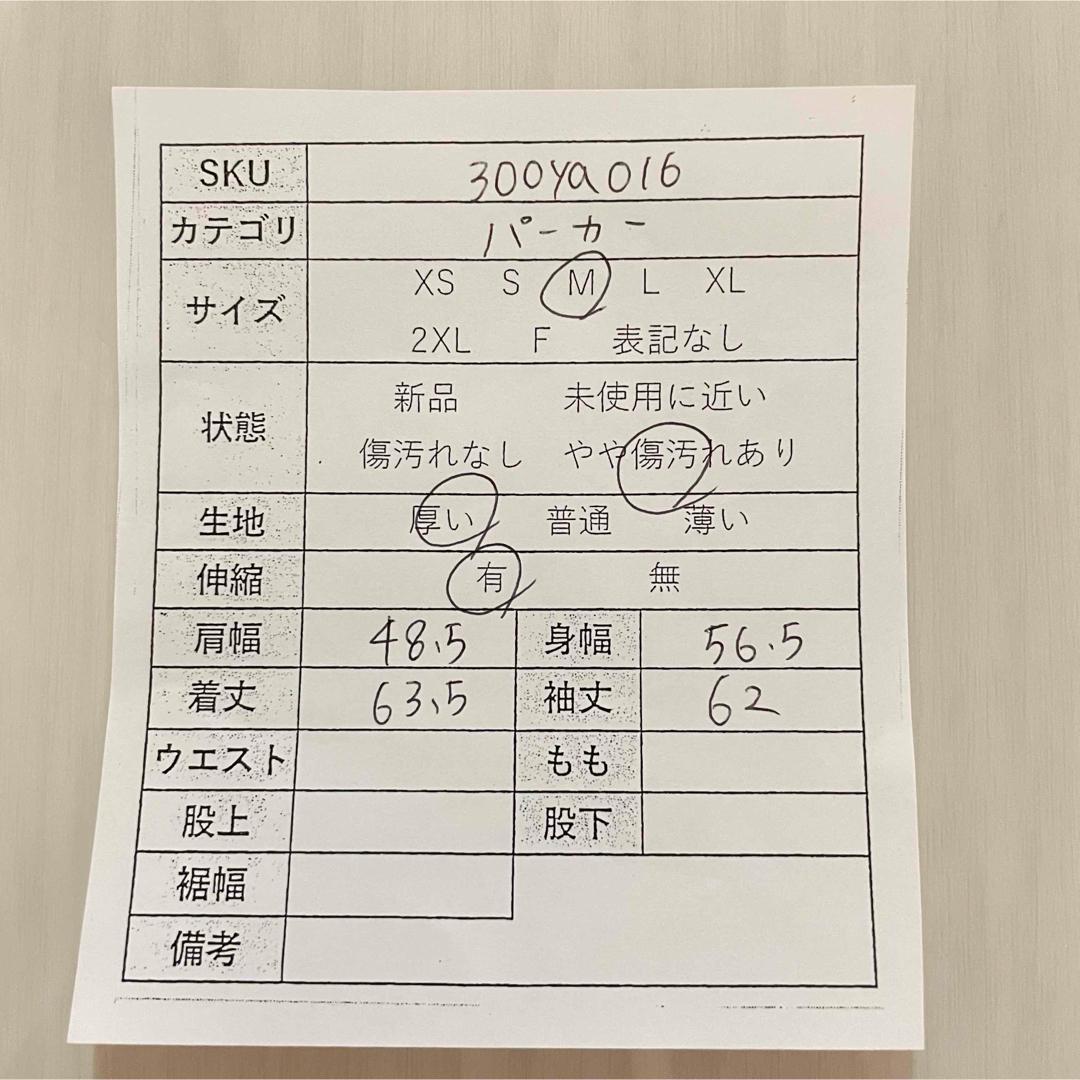 SKU 300ya016
カテゴリ パーカー
サイズ XS S M L XL
2XL F 表記なし
状態 新品 未使用に近い
傷汚れなし やや傷汚れあり
生地 厚い 普通 薄い
伸縮 有 無
肩幅 48.5 身幅 56.5
着丈 63.5 袖丈 62
ウエスト もも
股上 股下
裾幅
備考